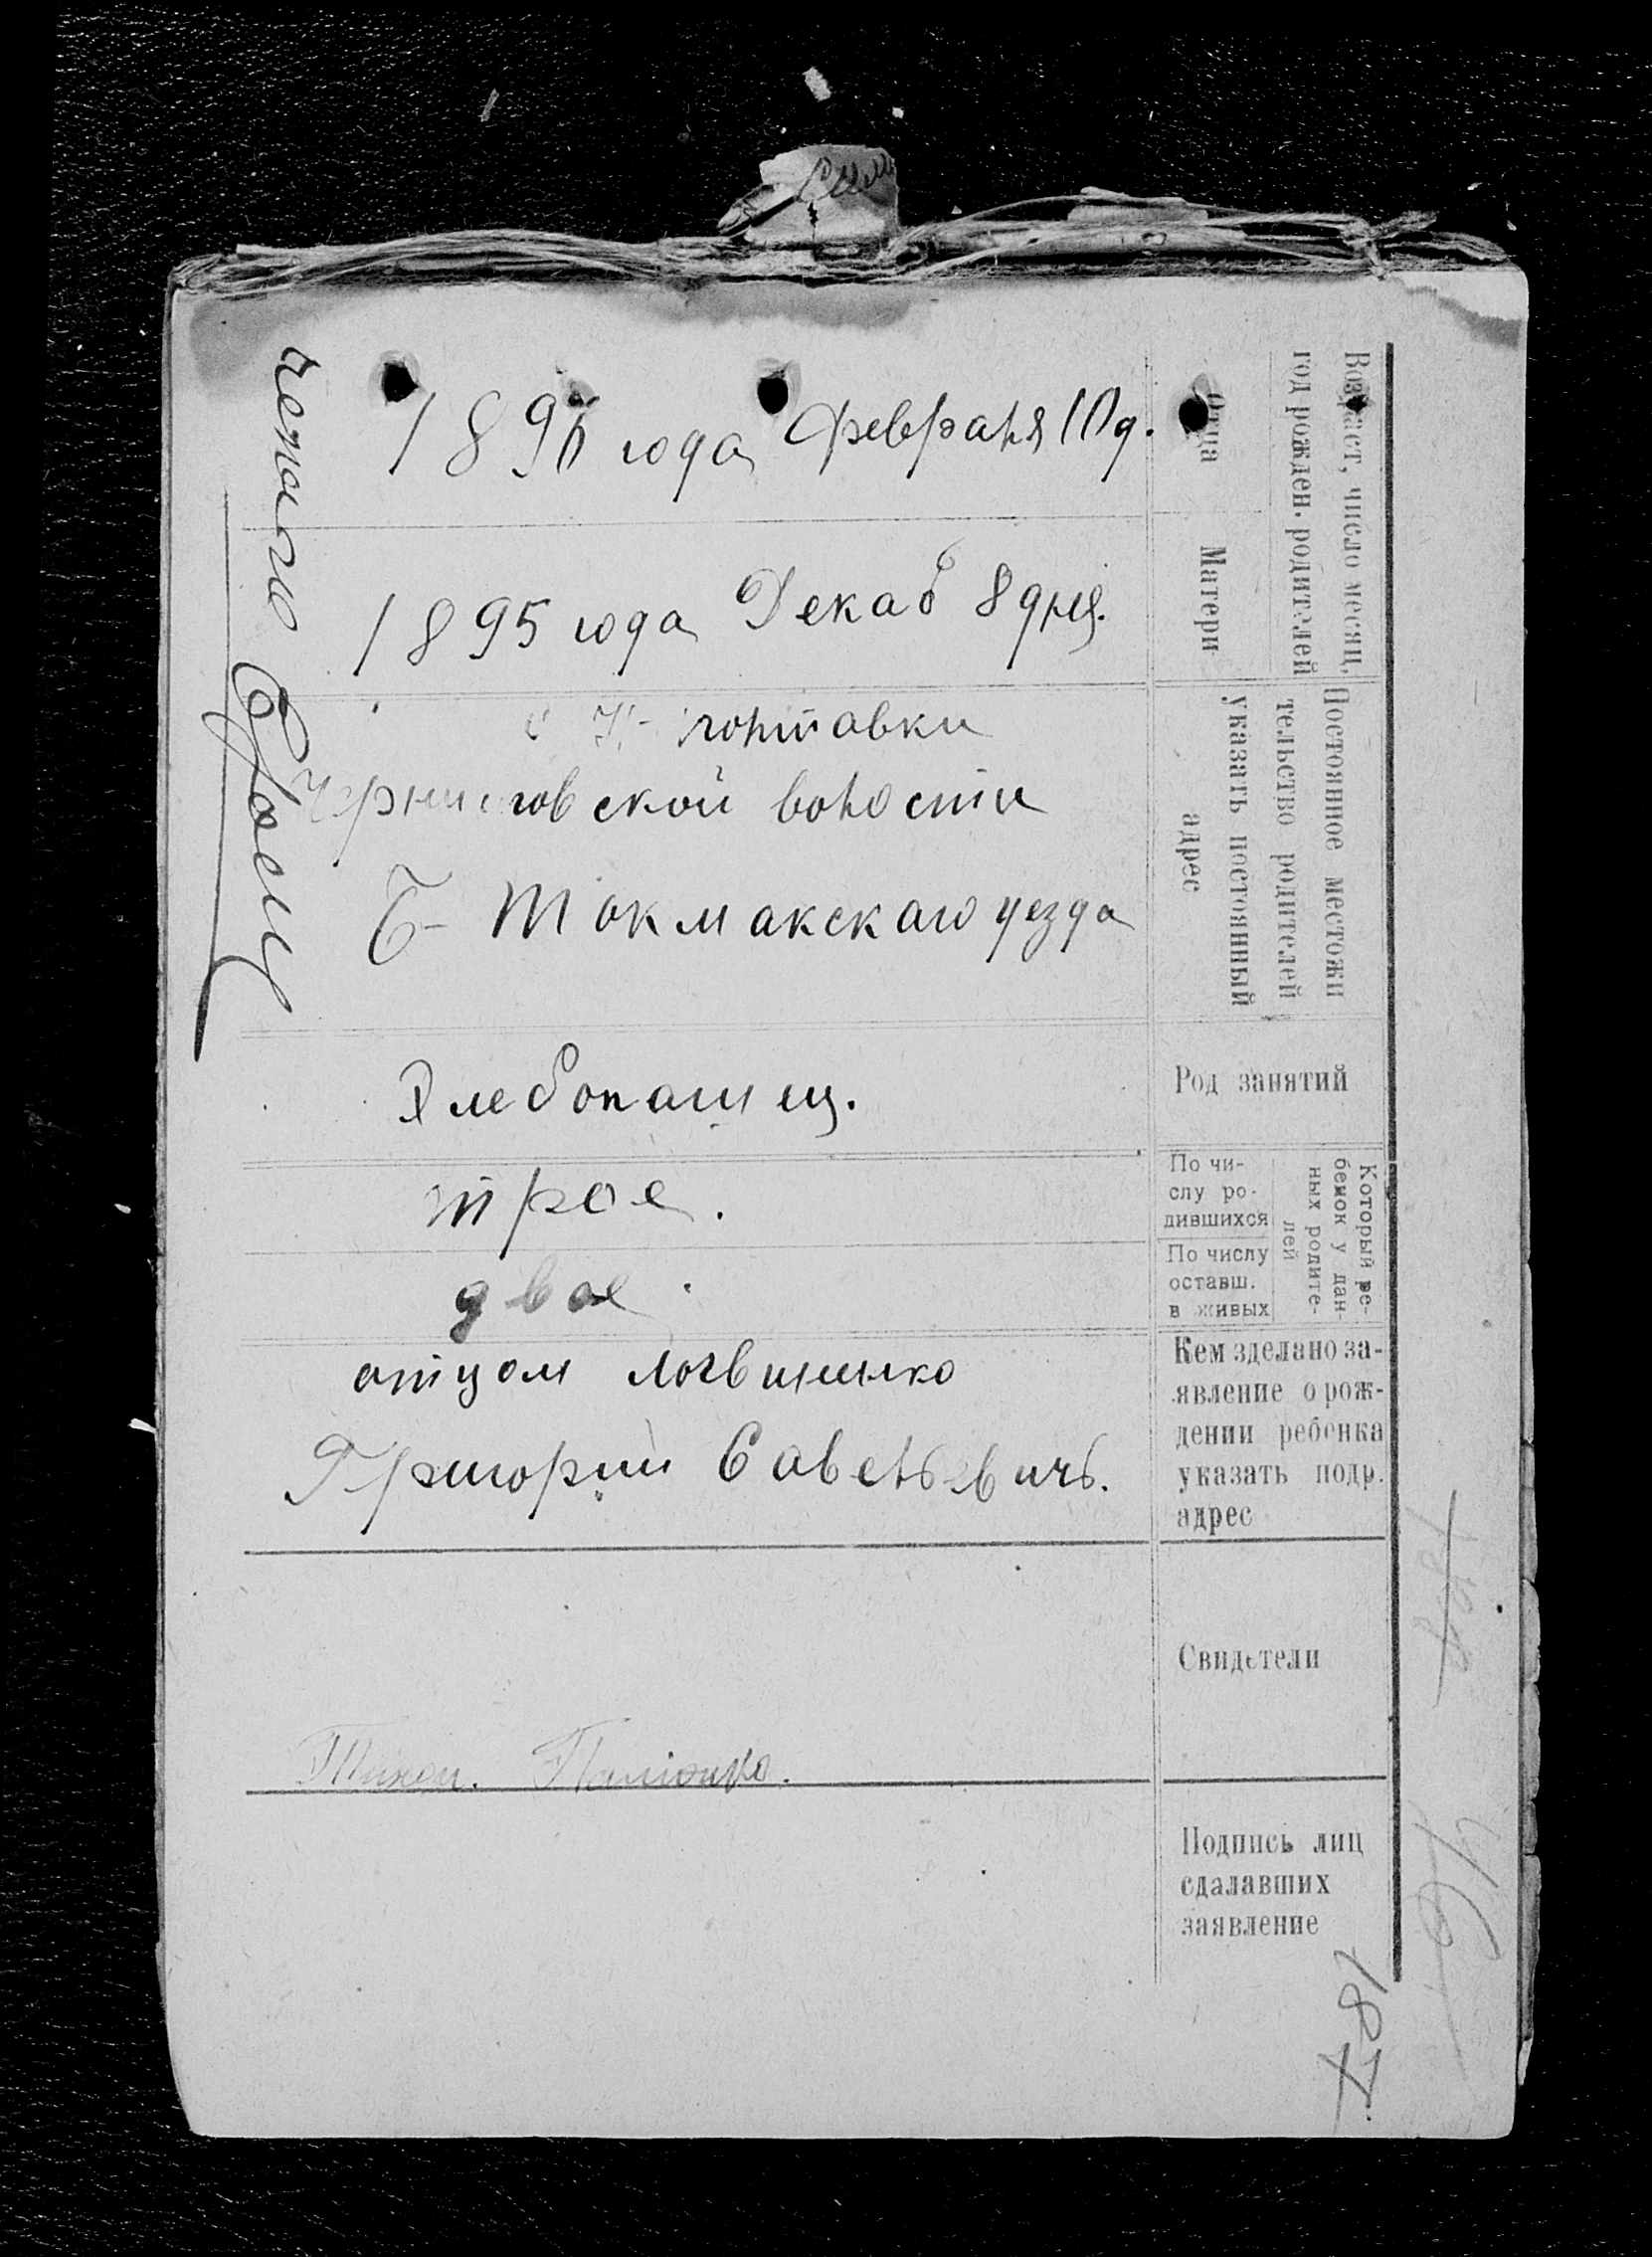 Возраст, число месяц,
год рожден. родителей
Отца
1896 года февраля 10 д.
Матери
1895 года Декаб 8 дня.
Постоянное местожи
тельство родителей
указать постоянный
адрес
полтавки
Черниговской волости
Б- Токмакскаго уезда
Род занятий
Хлебопашец.
Который ре-
бенок у дан-
ных родите-
лей
По чи-
слу ро-
дившихся
трое.
По числу
оставш.
в живых
двое.
Кем зделано за-
явление о рож-
дении ребенка
указать подр.
адрес
отцом Логвиненко
Григорий Савельевичъ.
Свидетели
Подпись лиц
сдалавших
заявление
187